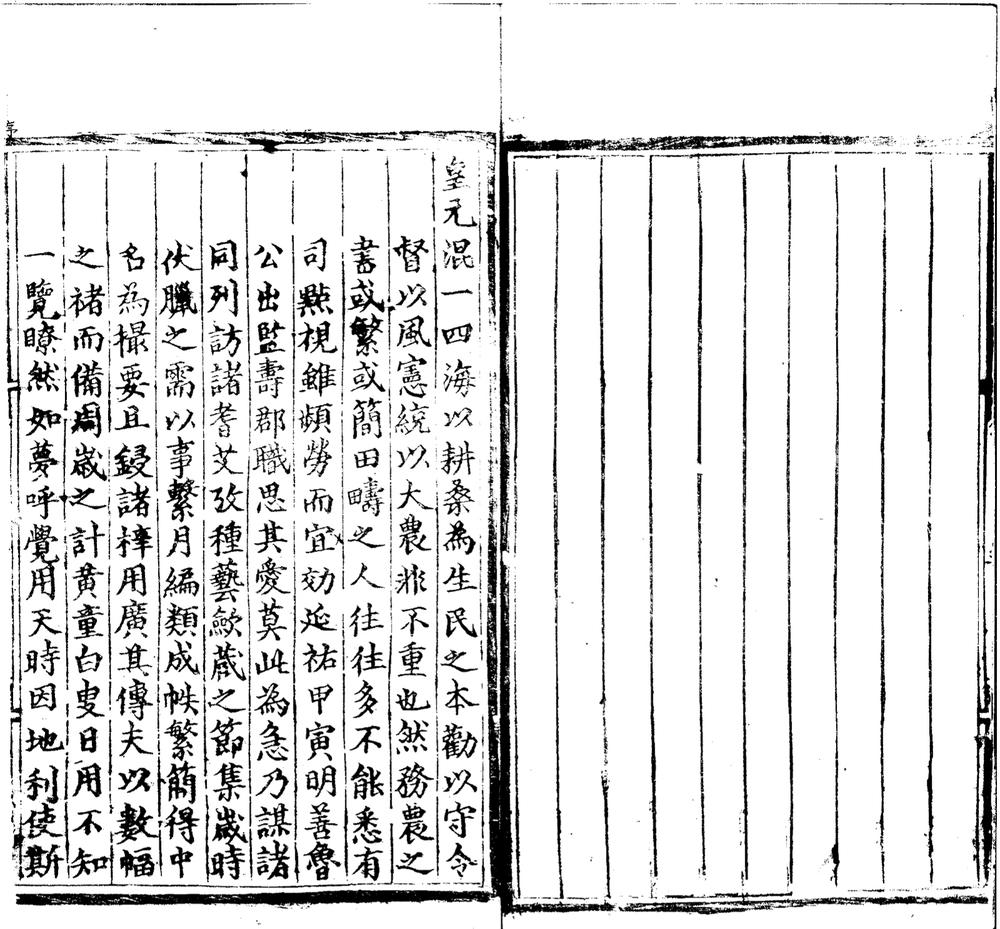 皇元混一四海以耕桑為生民之本勸以守令
督以風憲統以大農非不重也然務農之
書或繁或簡田疇之人往往多不能悉有
司點視雖頻勞而宜効延祐甲寅明善魯
公出監壽郡職思其憂莫此為急乃謀諸
同列訪諸耆艾攷種藝歛蔵之節集歲時
伏臘之需以事繫月編類成帙繁簡得中
名為撮要且鋟諸梓用廣其傳夫以數幅
之楮而備周歳之計黄童白叟日用不知
一覽瞭然如夢呼覺用天時因地利使斯